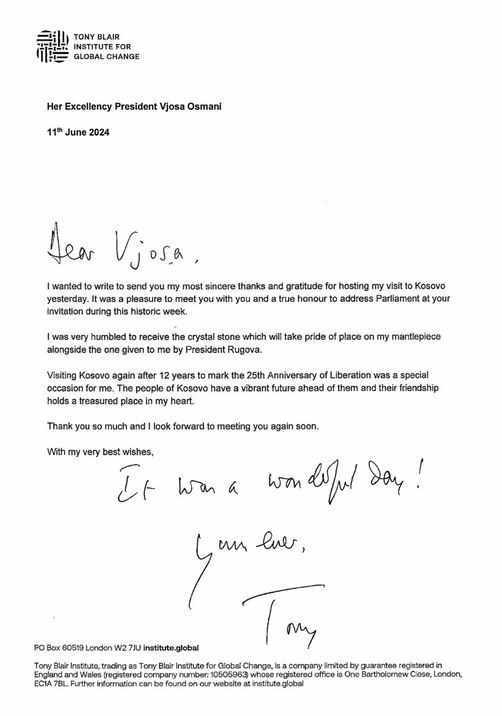 TONY BLAIR
INSTITUTE FOR
GLOBAL CHANGE
Her Excellency President Vjosa Osmani
11th June 2024
Dear Vjosa,
I wanted to write to send you my most sincere thanks and gratitude for hosting my visit to Kosovo
yesterday. It was a pleasure to meet you with you and a true honour to address Parliament at your
invitation during this historic week.
I was very humbled to receive the crystal stone which will take pride of place on my mantlepiece
alongside the one given to me by President Rugova.
Visiting Kosovo again after 12 years to mark the 25th Anniversary of Liberation was a special
occasion for me. The people of Kosovo have a vibrant future ahead of them and their friendship
holds a treasured place in my heart.
Thank you so much and I look forward to meeting you again soon.
With my very best wishes,
It was a wonderful day!
Yours ever,
Tony
PO Box 60519 London W2 7JU institute.global
Tony Blair Institute, trading as Tony Blair Institute for Global Change, is a company limited by guarantee registered in
England and Wales (registered company number: 10505963) whose registered office is One Bartholomew Close, London,
EC1A 7BL. Further information can be found on our website at institute.global